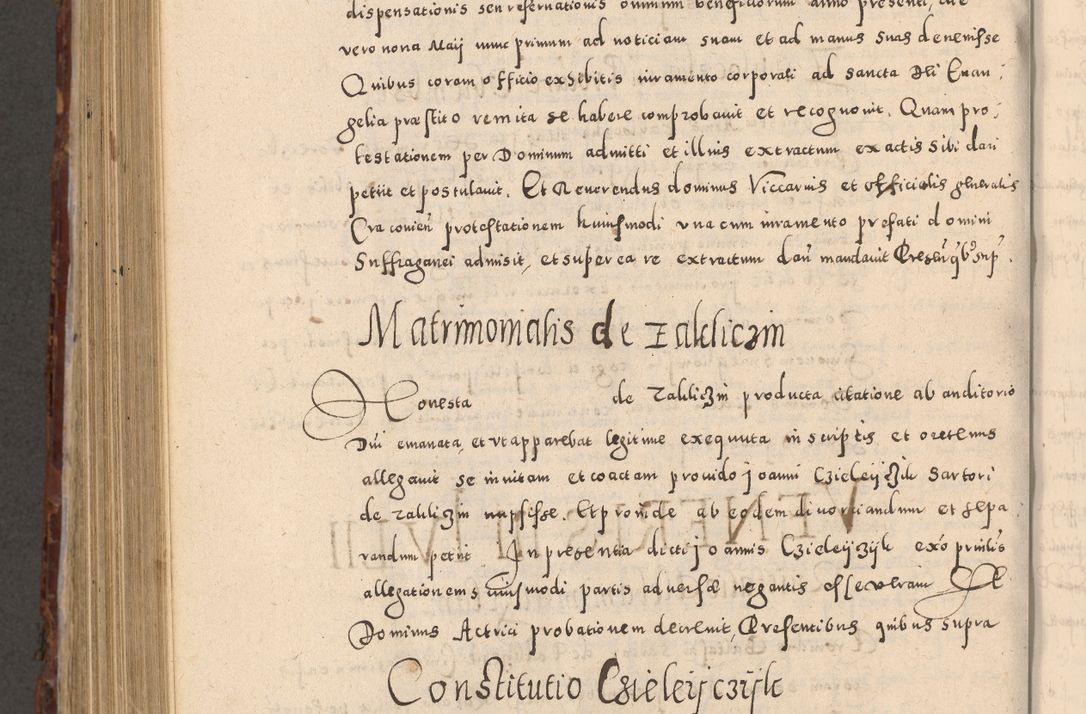 dispensationis seu reservationis omnium beneficiorum anno presenti, die
vero nona Maij nunc primum ad noticiam suam et ad manus suas devenisse
Quibus coram officio exhibitis iuramento corporali ad sancta Dei Euan
gelia præstito rem ita se habere comprobauit et recognouit. Quam pro
testationem per Dominum admitti et illius extractum ex actis sibi dari
petiit et postulauit. Et Reuerendus dominus Viccarius et officialis generalis
Cra conien protestationem huiusmodi vna cum iuramento prefati domini
Suffraganei admisit, et super ea re extractum dari mandauit Presen qbs sup.
Matrimonialis de Zakliczin
Honesta de Zakliczin producta citatione ab auditorio
Dni emanata, et vt apparebat legitime exequuta in scriptis et oretenus
allegauit se inuitam et coactam prouido joanni Czieleijzik sartori
de Zakliczin nupsisse. Et proinde ab eodem diuorciandum et sepa
randum petiit In presentia dicti joannis Czieleijzijk exo priuilis
allegationem huiusmodi partis aduersæ negantis esse veram Et
Dominus Actrici probationem decreuit, Presentibus quibus supra
Constitutio Czieleijczijk